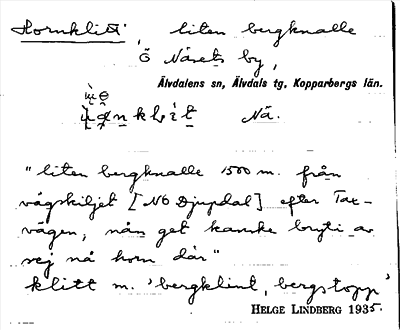 Hornklitt, liten bergknalle
Ö Näsets by,
Älvdalens sn, Älvdals tg, Kopparbergs län.
Nä.
"liten bergknalle 1500 m. från
vägskiljet [NÖ Djupdal] efter Tax-
vägen, nån get kanske bryti av
sej nå horn där"
klitt m. 'bergklint, bergstopp'
HELGE LINDBERG 1935.